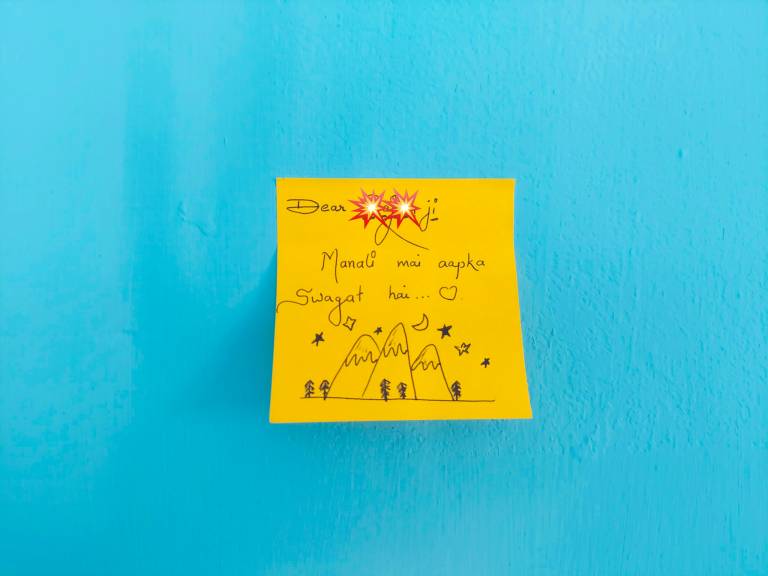 Dear ji
Manali mai aapka
Swagat hai... ♡.